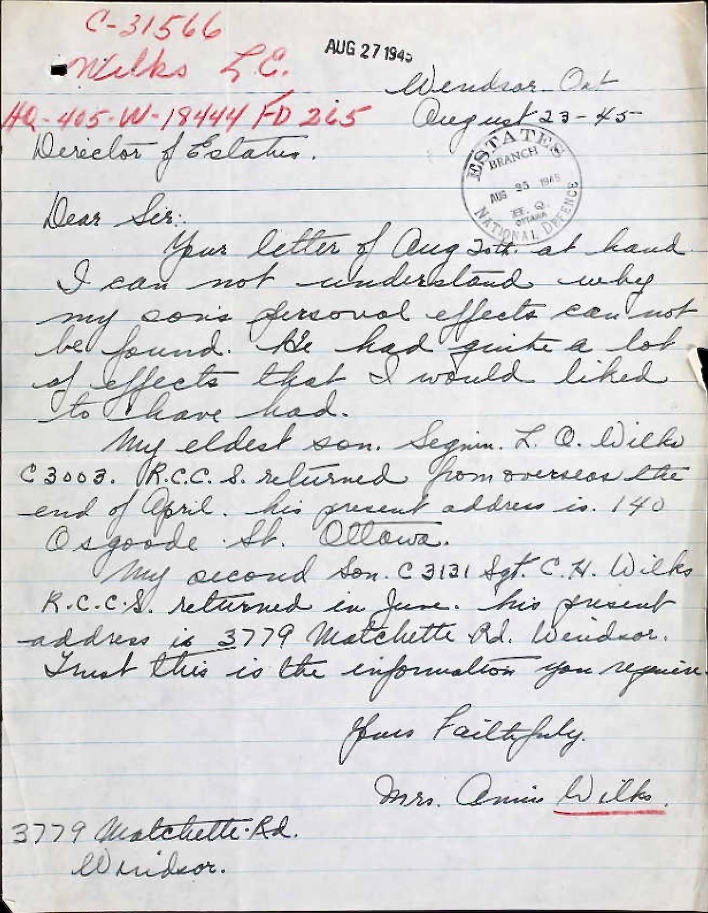 C-31566
Wilks L.E.
HQ-405-W-18444 FD 265
AUG 27 1945
Windsor Ont
August 23-45
ESTATES
BRANCH
AUG 25 1945
H.Q.
OTTAWA
NATIONAL DEFENCE
Director of Estates.
Dear Sir:
Your letter of Aug 20th. at hand
I can not understand why
my son's personal effects can not
be found. He had quite a lot
of effects that I would liked
to have had.
My eldest son. Segmn. L. O. Wilks
C 3003. R.C.C.S. returned from overseas the
end of April. his present address is. 140
Osgoode St. Ottawa.
My second Son. C 3131 Sgt. C. H. Wilks
R.C.C.S. returned in June. his present
address is 3779 Matchette Rd. Windsor.
Trust this is the information you require.
Yours Faithfuly.
Mrs. Annie Wilks.
3779 Matchette Rd.
Windsor.